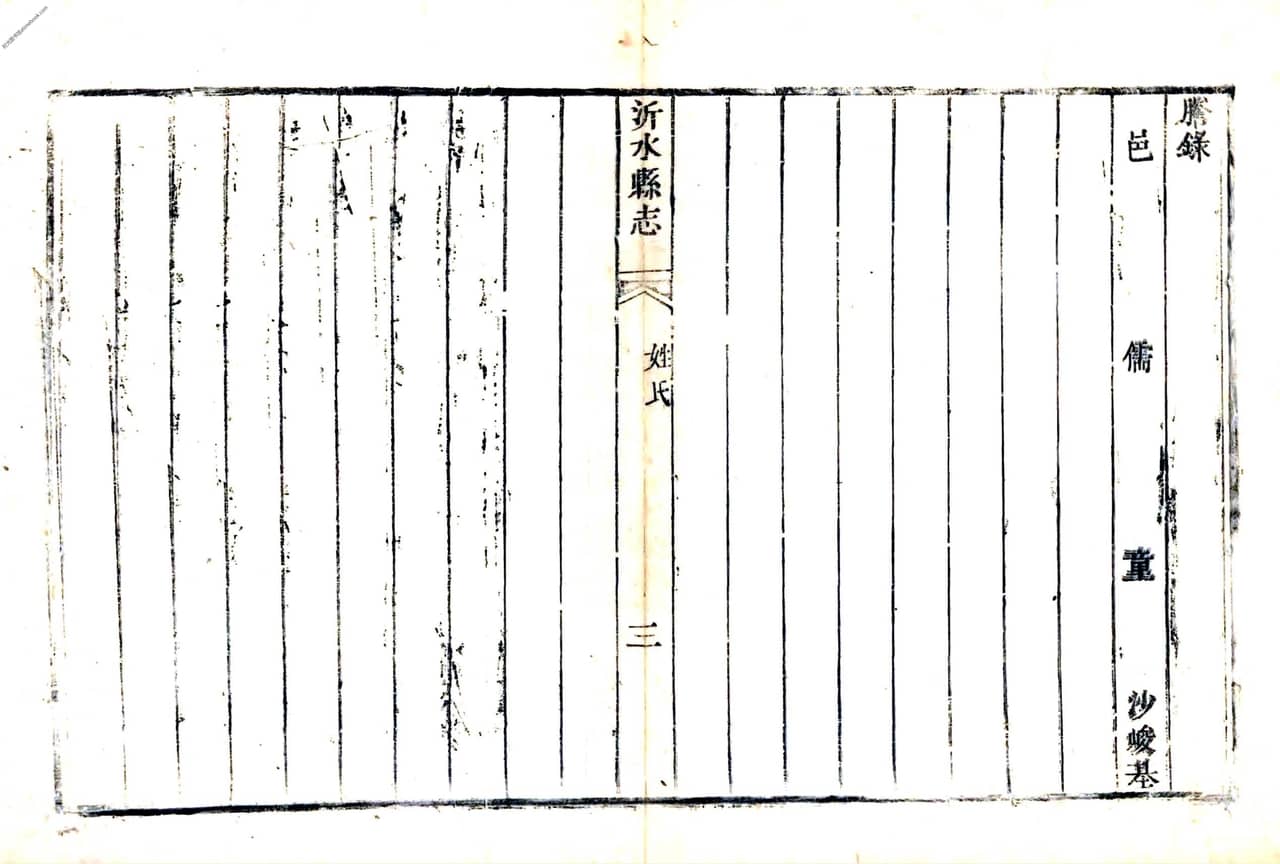 謄錄
邑儒童沙峻基
沂水縣志
姓氏
三